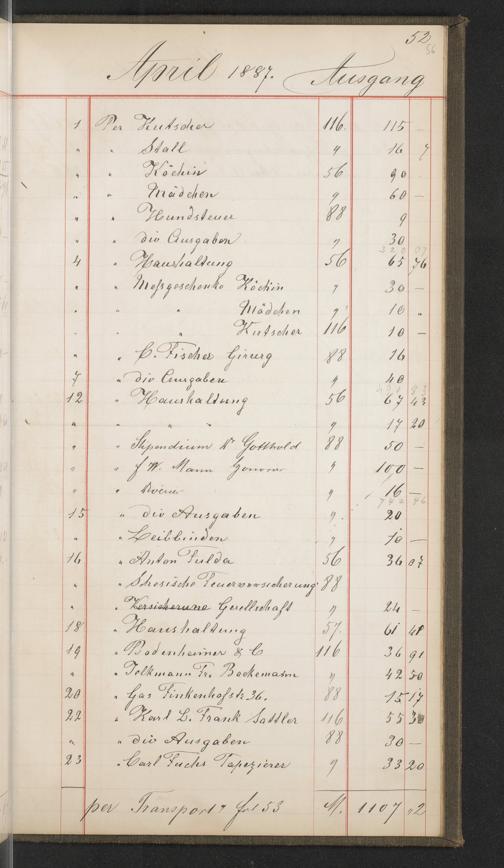 52
56
April 1887. Ausgang
1 Per Kutscher 116. 115 —
" " Stall " 16 7
" " Köchin 56 90
" " Mädchen " 60 —
" " Hundsteuer 88 9
" " div Ausgaben " 30
4 " Haushaltung 56 65 76
" " Messgeschenke Köchin " 30 —
" Mädchen " 10 "
" Kutscher 116 10 —
" " C. Fischer 88 16
7 " div Ausgaben " 40
12 " Haushaltung 56 67 43
" " " " " 17 20
" " Stipendium Dr Gotthold 88 50 —
" " f W. Mann " 100 —
" " " 16 —
15 " div Ausgaben " 20
" " Leibbinden " 10 —
16 " Anton Fulda 56 36 07
" " Feuerversicherung 88
" " Versicherung Gesellschaft " 24 —
18 " Haushaltung 57. 61 41
19 " Bodenheimer & C 116 36 91
" " Fr. Bockemann " 42 50
20 " Gas Finkenhofstr. 36. 88 15 17
22 " Karl L. Frank Sattler 116 55 30
" " div Ausgaben 88 30 —
23 " Carl Fuchs Tapezierer " 33 20
per Transport fol 53 M. 1107 "2